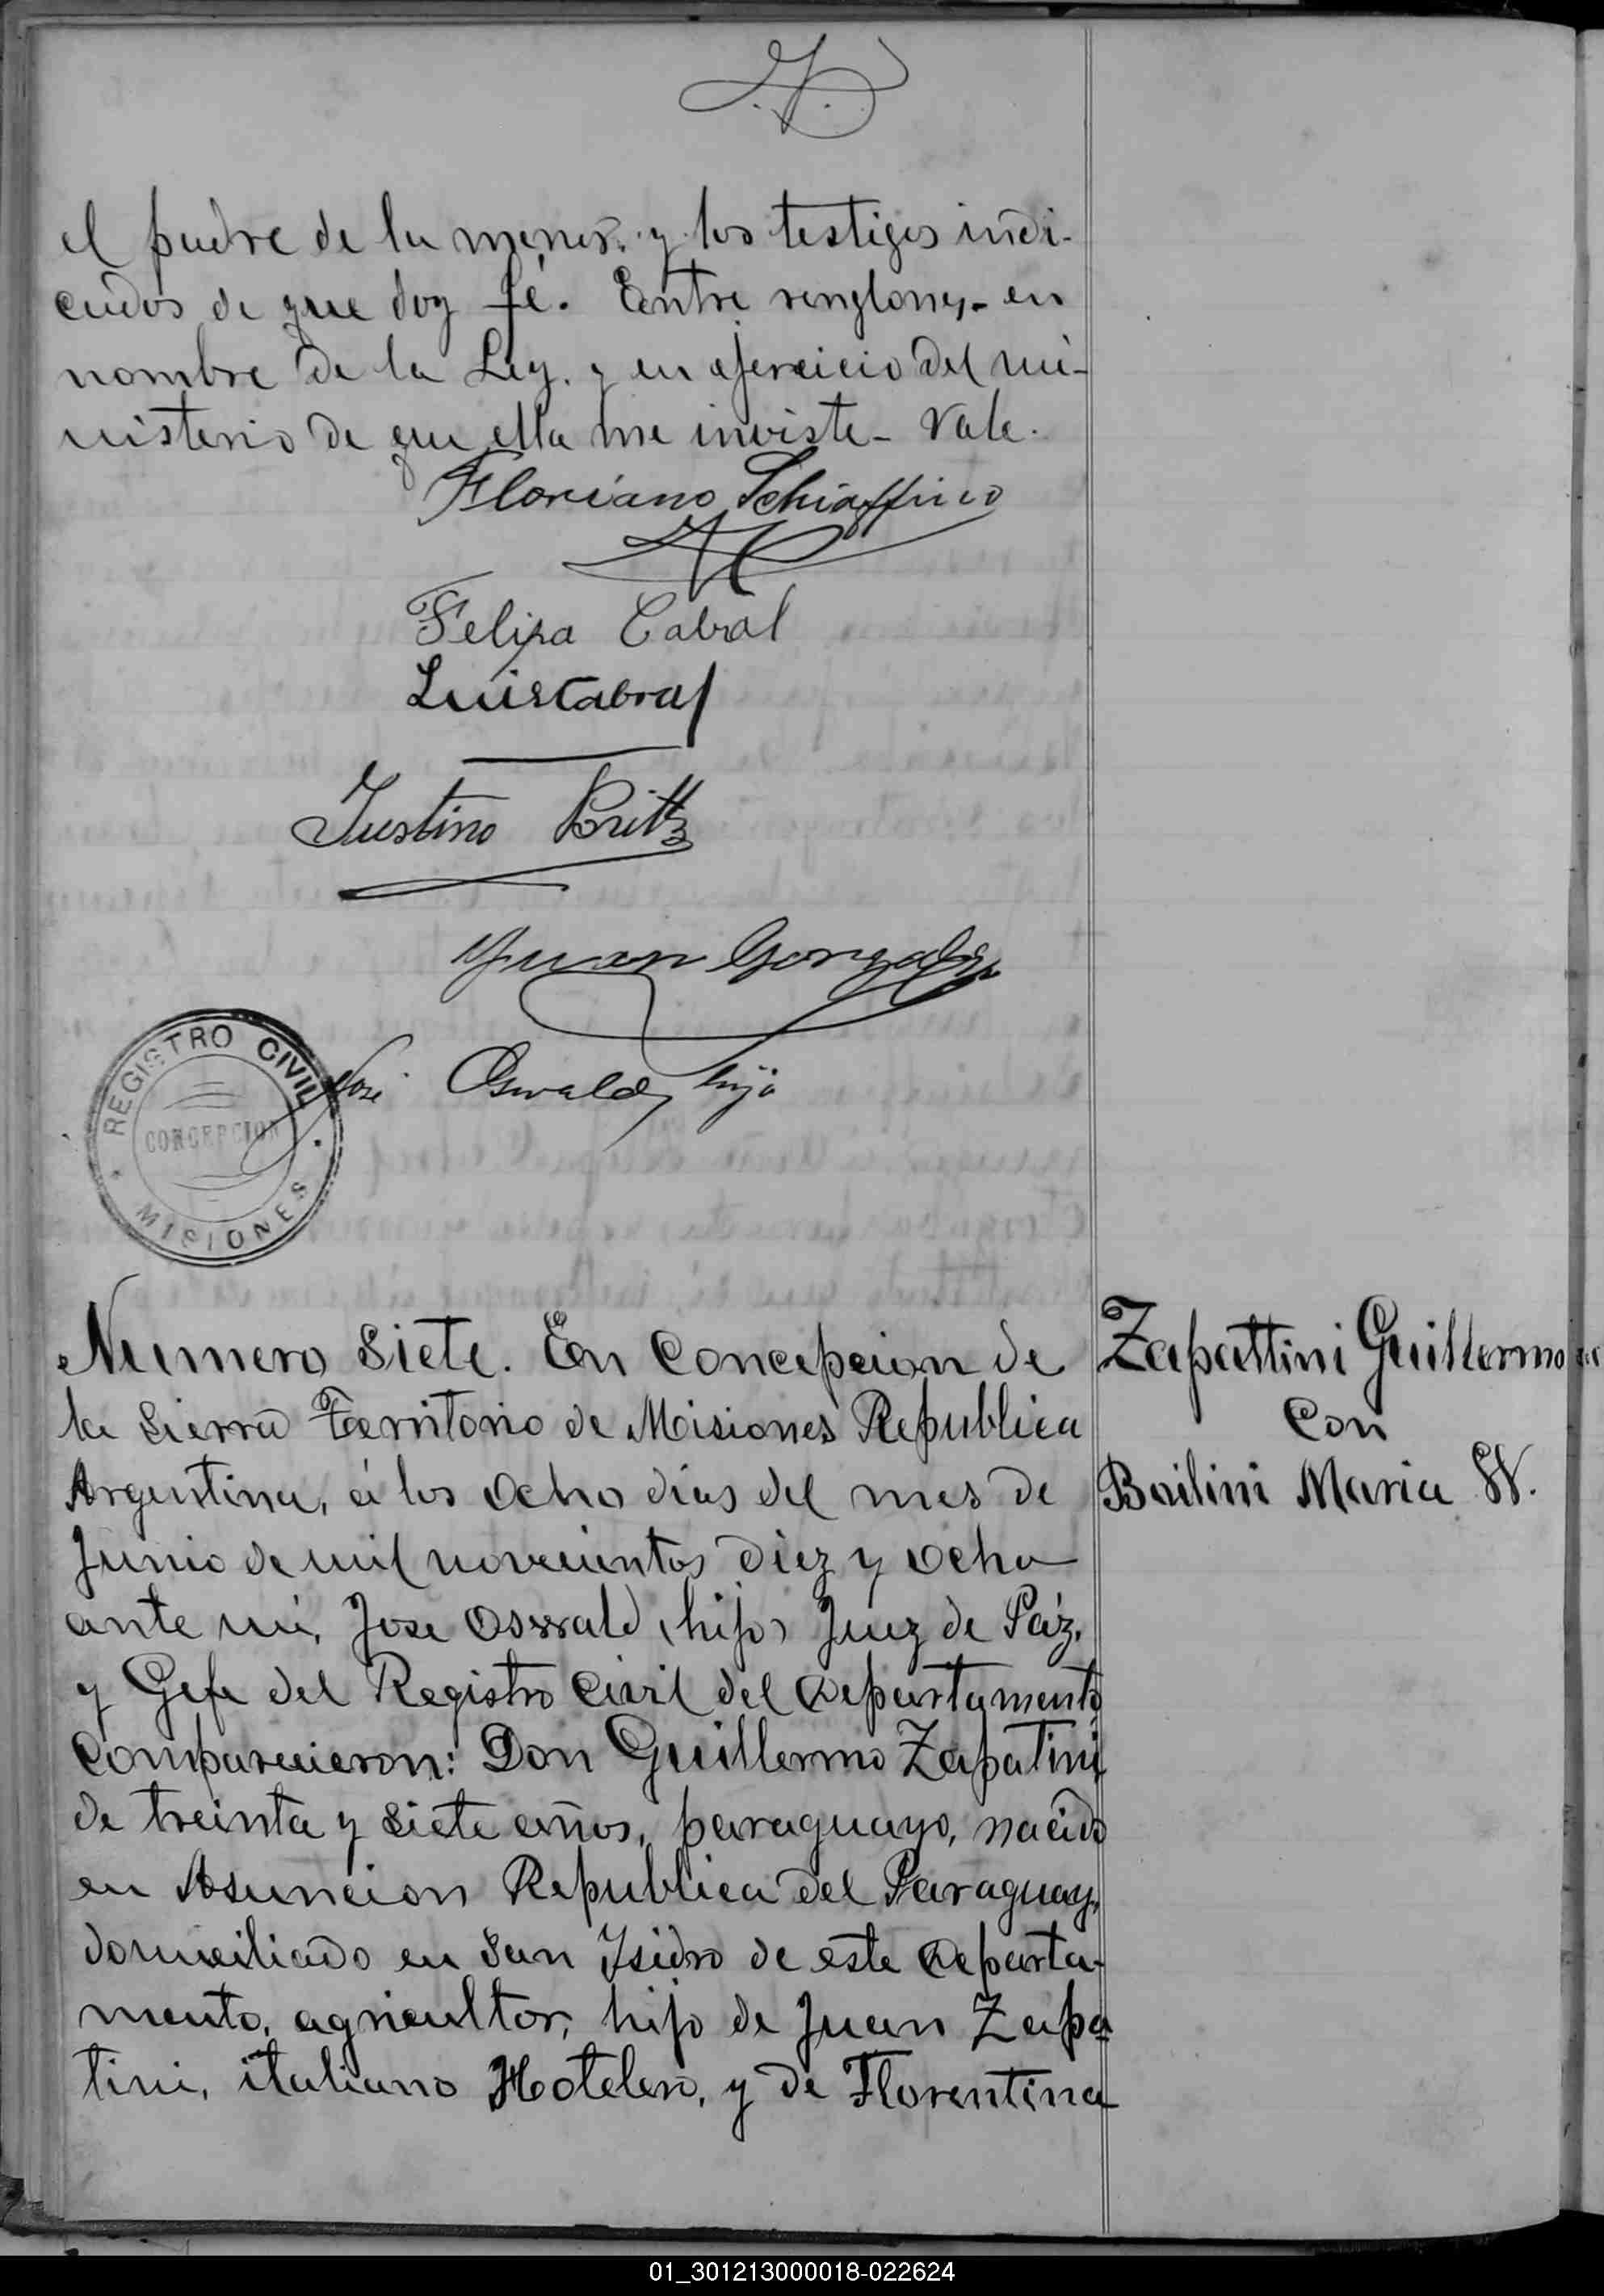 el padre de la menor, y los testigos indi-
cados de que doy fé. Entre renglones - en
nombre de la Ley. y en ejercicio del mi-
nisterio de que ella me inviste - Vale.
Floriano Schiaffino
Felipa Cabral
Luis Cabral
Justino Britz
Juan Gonzalez
José Oswald, hijo
REGISTRO CIVIL
CONCEPCION
MISIONES
Numero siete. En Concepcion de
la Sierra Territorio de Misiones Republica
Argentina, á los ocho dias del mes de
Junio de mil novecientos diez y ocho
ante mí, Jose Oswald (hijo) Juez de Páz,
y Gefe del Registro Civil del Departamento
Comparecieron: Don Guillermo Zapatini
de treinta y siete años, paraguayo, nacido
en Asuncion Republica del Paraguay,
domiciliado en San Isidro de este Departa-
mento, agricultor, hijo de Juan Zapa
tini, italiano Hotelero, y de Florentina
Zapattini Guillermo
Con
Bailini Maria W.
01_301213000018-022624